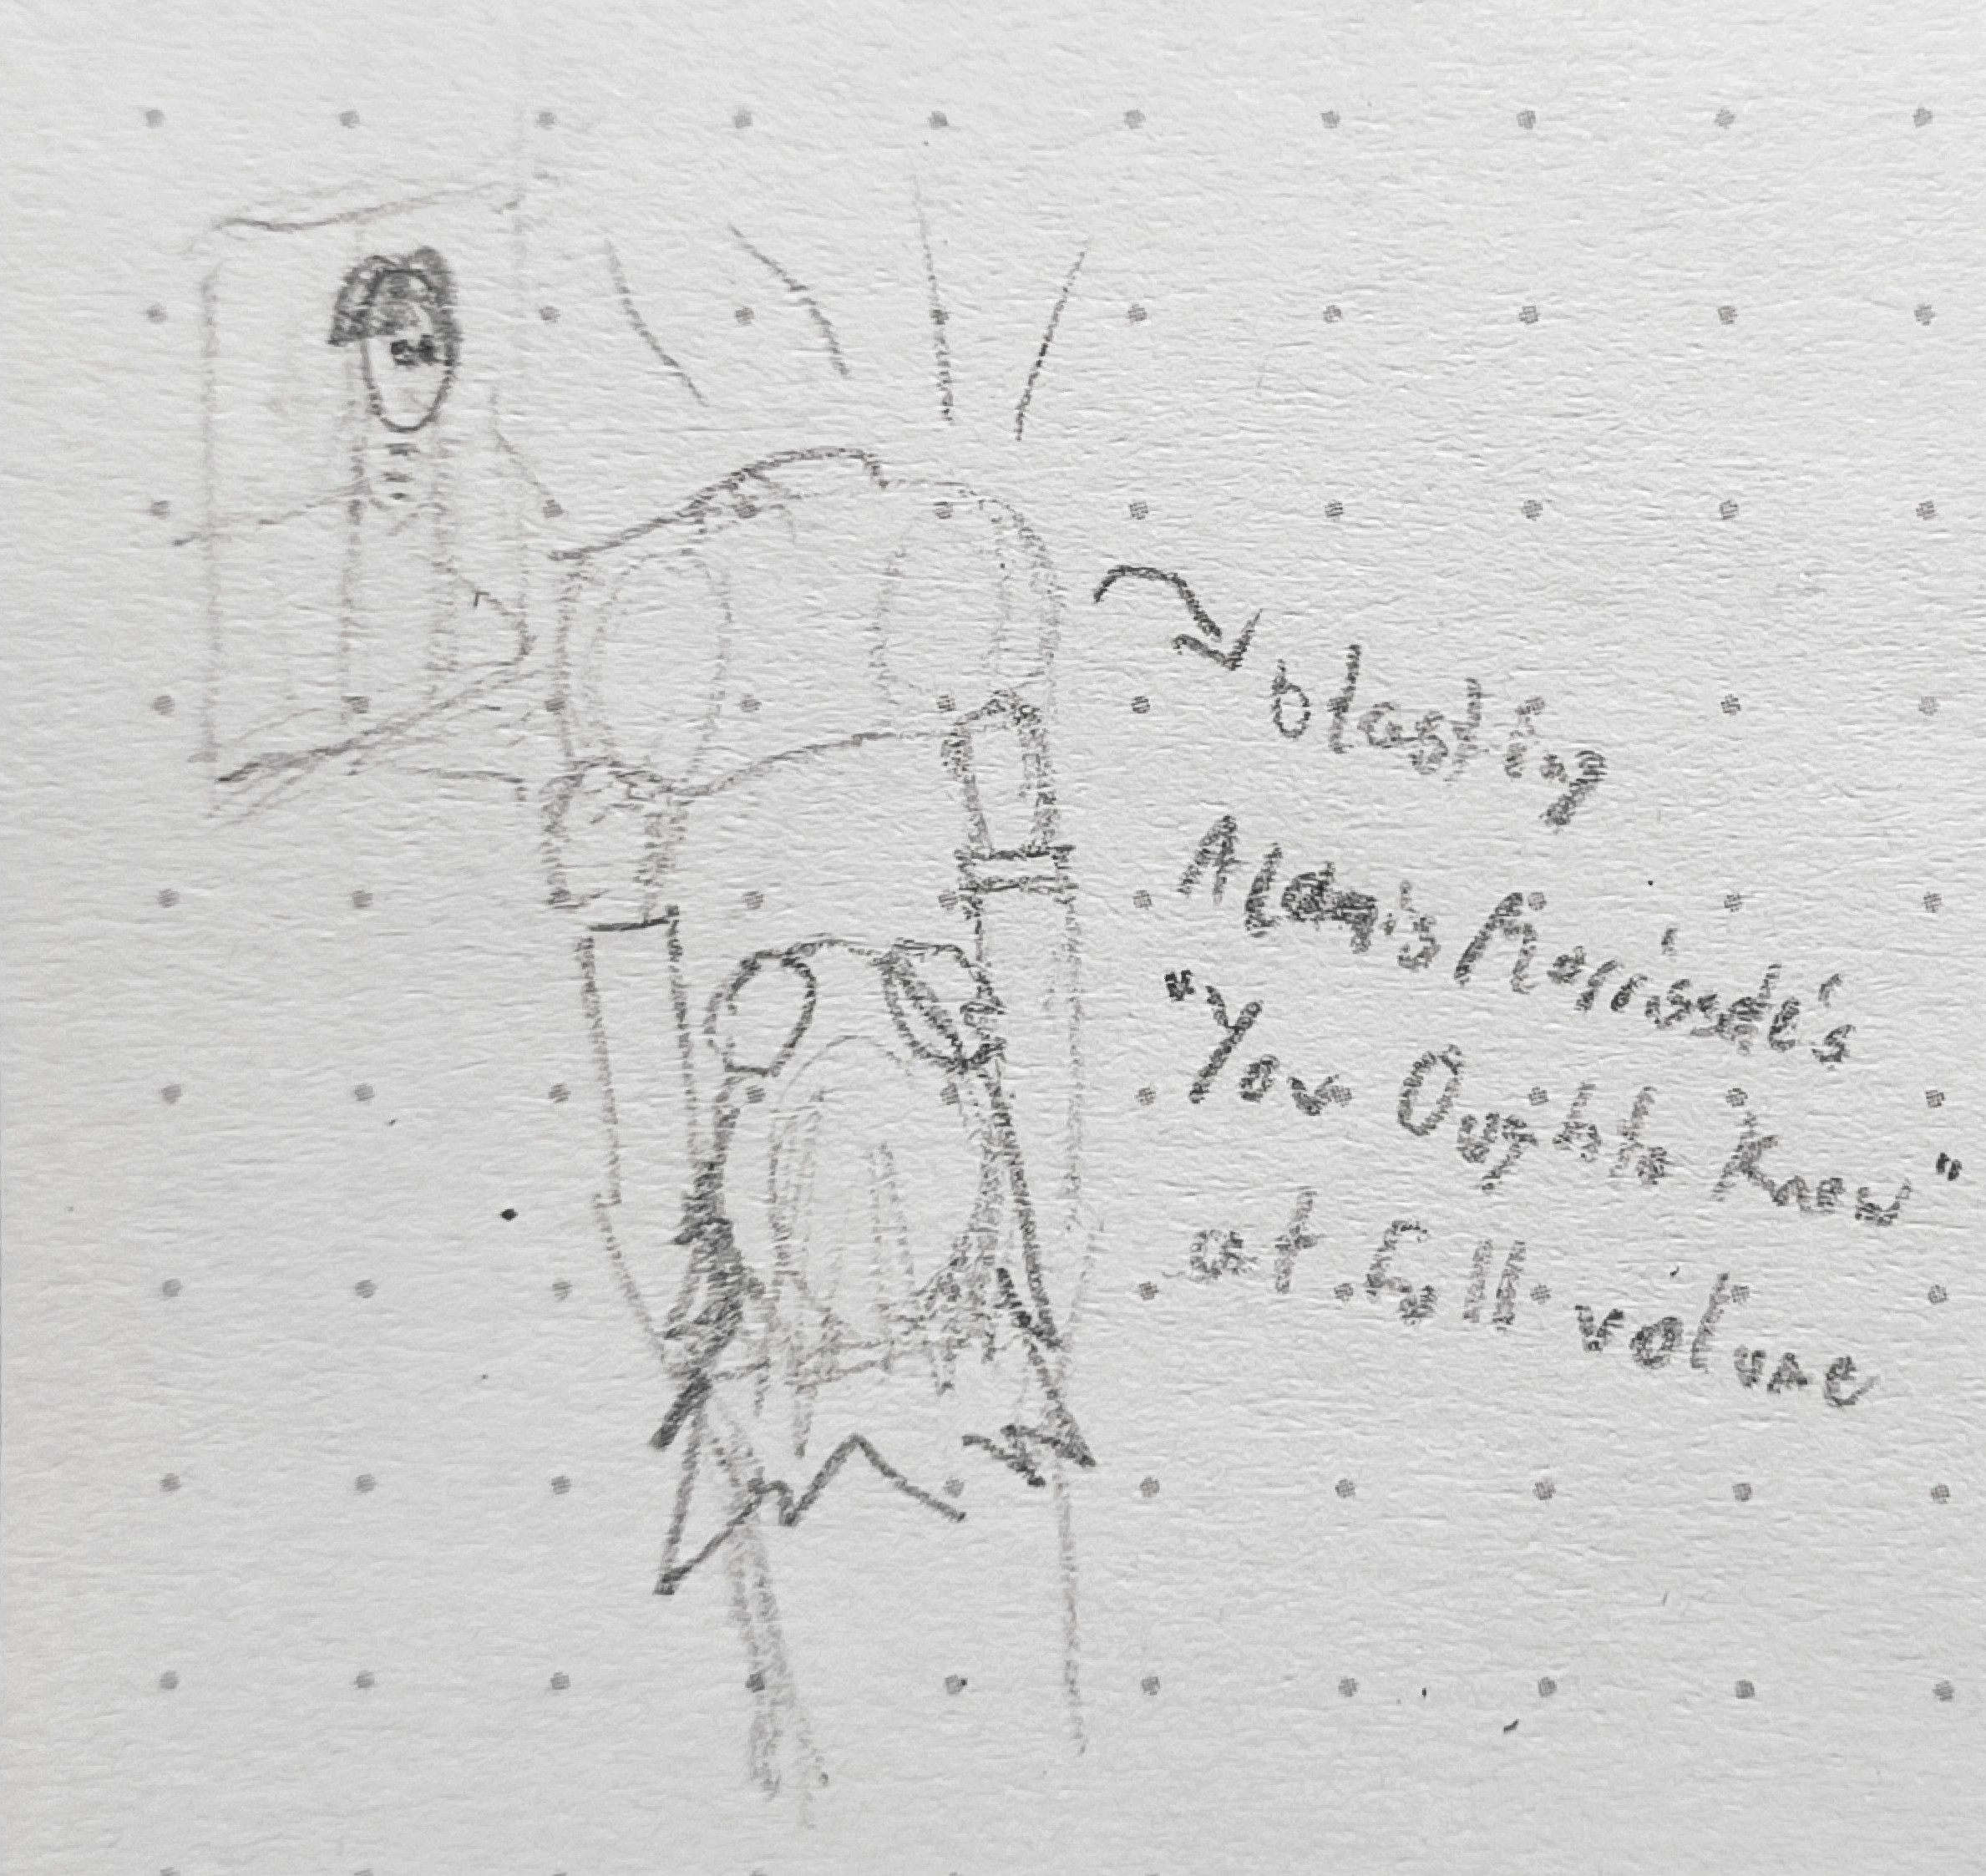 blasting
Alanis Morrissette's
"You Ought to Know"
at full volume